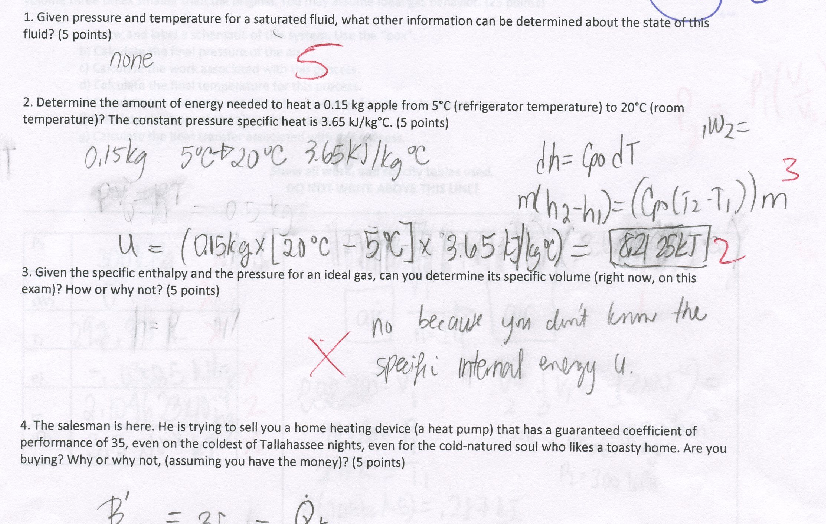 1. Given pressure and temperature for a saturated fluid, what other information can be determined about the state of this
fluid? (5 points)
none 5
2. Determine the amount of energy needed to heat a 0.15 kg apple from 5°C (refrigerator temperature) to 20°C (room
temperature)? The constant pressure specific heat is 3.65 kJ/kg°C. (5 points)
₁W₂=
0.15kg 5°C→20°C 3.65kJ/kg°C dh= Cpo dT
3
m(h₂-h₁)=(Cp(T₂-T₁))m
u = (0.15kg x [20°C - 5°C] x 3.65 kJ/kg°C) = 2
3. Given the specific enthalpy and the pressure for an ideal gas, can you determine its specific volume (right now, on this
exam)? How or why not? (5 points)
no because you don't know the
X specific internal energy u.
4. The salesman is here. He is trying to sell you a home heating device (a heat pump) that has a guaranteed coefficient of
performance of 35, even on the coldest of Tallahassee nights, even for the cold-natured soul who likes a toasty home. Are you
buying? Why or why not, (assuming you have the money)? (5 points)